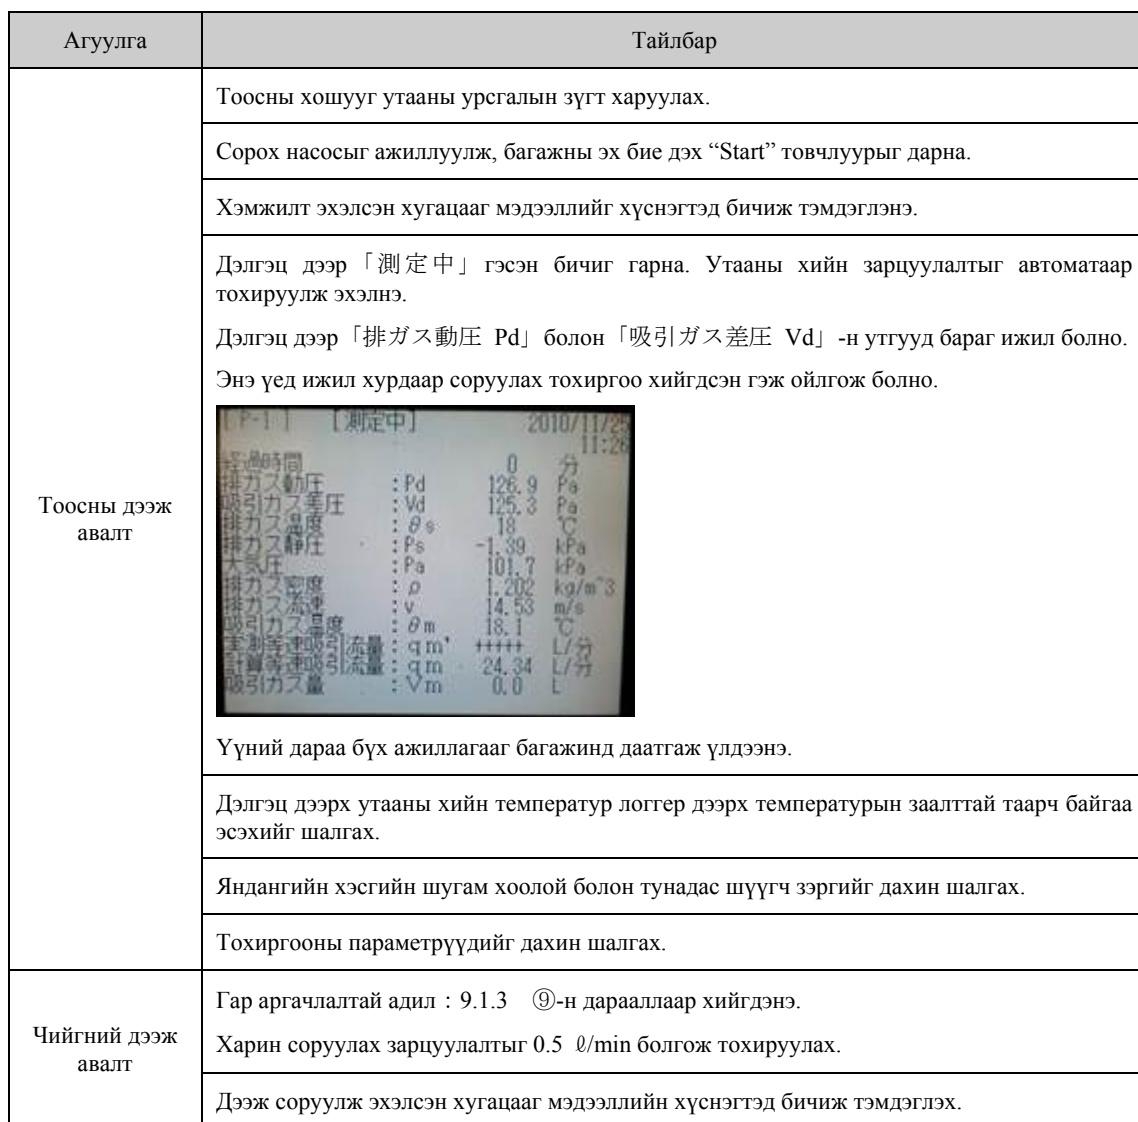 Агуулга
Тайлбар
Тоосны дээж
авалт
Тоосны хошууг утааны урсгалын зүгт харуулах.
Сорох насосыг ажиллуулж, багажны эх бие дэх “Start” товчлуурыг дарна.
Хэмжилт эхэлсэн хугацааг мэдээллийг хүснэгтэд бичиж тэмдэглэнэ.
Дэлгэц дээр「測定中」гэсэн бичиг гарна. Утааны хийн зарцуулалтыг автоматаар
тохируулж эхэлнэ.
Дэлгэц дээр「排ガス動圧 Pd」болон「吸引ガス差圧 Vd」-н утгууд бараг ижил болно.
Энэ үед ижил хурдаар соруулах тохиргоо хийгдсэн гэж ойлгож болно.
[ P-1 ] [測定中] 2010/11/25
11:26
経過時間 0 分
排ガス動圧 :Pd 126.9 Pa
吸引ガス差圧 :Vd 125.3 Pa
排ガス温度 :θs 18 ℃
排ガス静圧 :Ps -1.39 kPa
大気圧 :Pa 101.7 kPa
排ガス密度 :ρ 1.202 kg/m^3
排ガス流速 :v 14.53 m/s
吸引ガス温度 :θm 18.1 ℃
実測等速吸引流量:qm' +++++ L/分
計算等速吸引流量:qm 24.34 L/分
吸引ガス量 :Vm 0.0 L
Үүний дараа бүх ажиллагааг багажинд даатгаж үлдээнэ.
Дэлгэц дээрх утааны хийн температур логгер дээрх температурын заалттай таарч байгаа
эсэхийг шалгах.
Яндангийн хэсгийн шугам хоолой болон тунадас шүүгч зэргийг дахин шалгах.
Тохиргооны параметрүүдийг дахин шалгах.
Чийгний дээж
авалт
Гар аргачлалтай адил：9.1.3 ⑨-н дарааллаар хийгдэнэ.
Харин соруулах зарцуулалтыг 0.5 ℓ/min болгож тохируулах.
Дээж соруулж эхэлсэн хугацааг мэдээллийн хүснэгтэд бичиж тэмдэглэх.